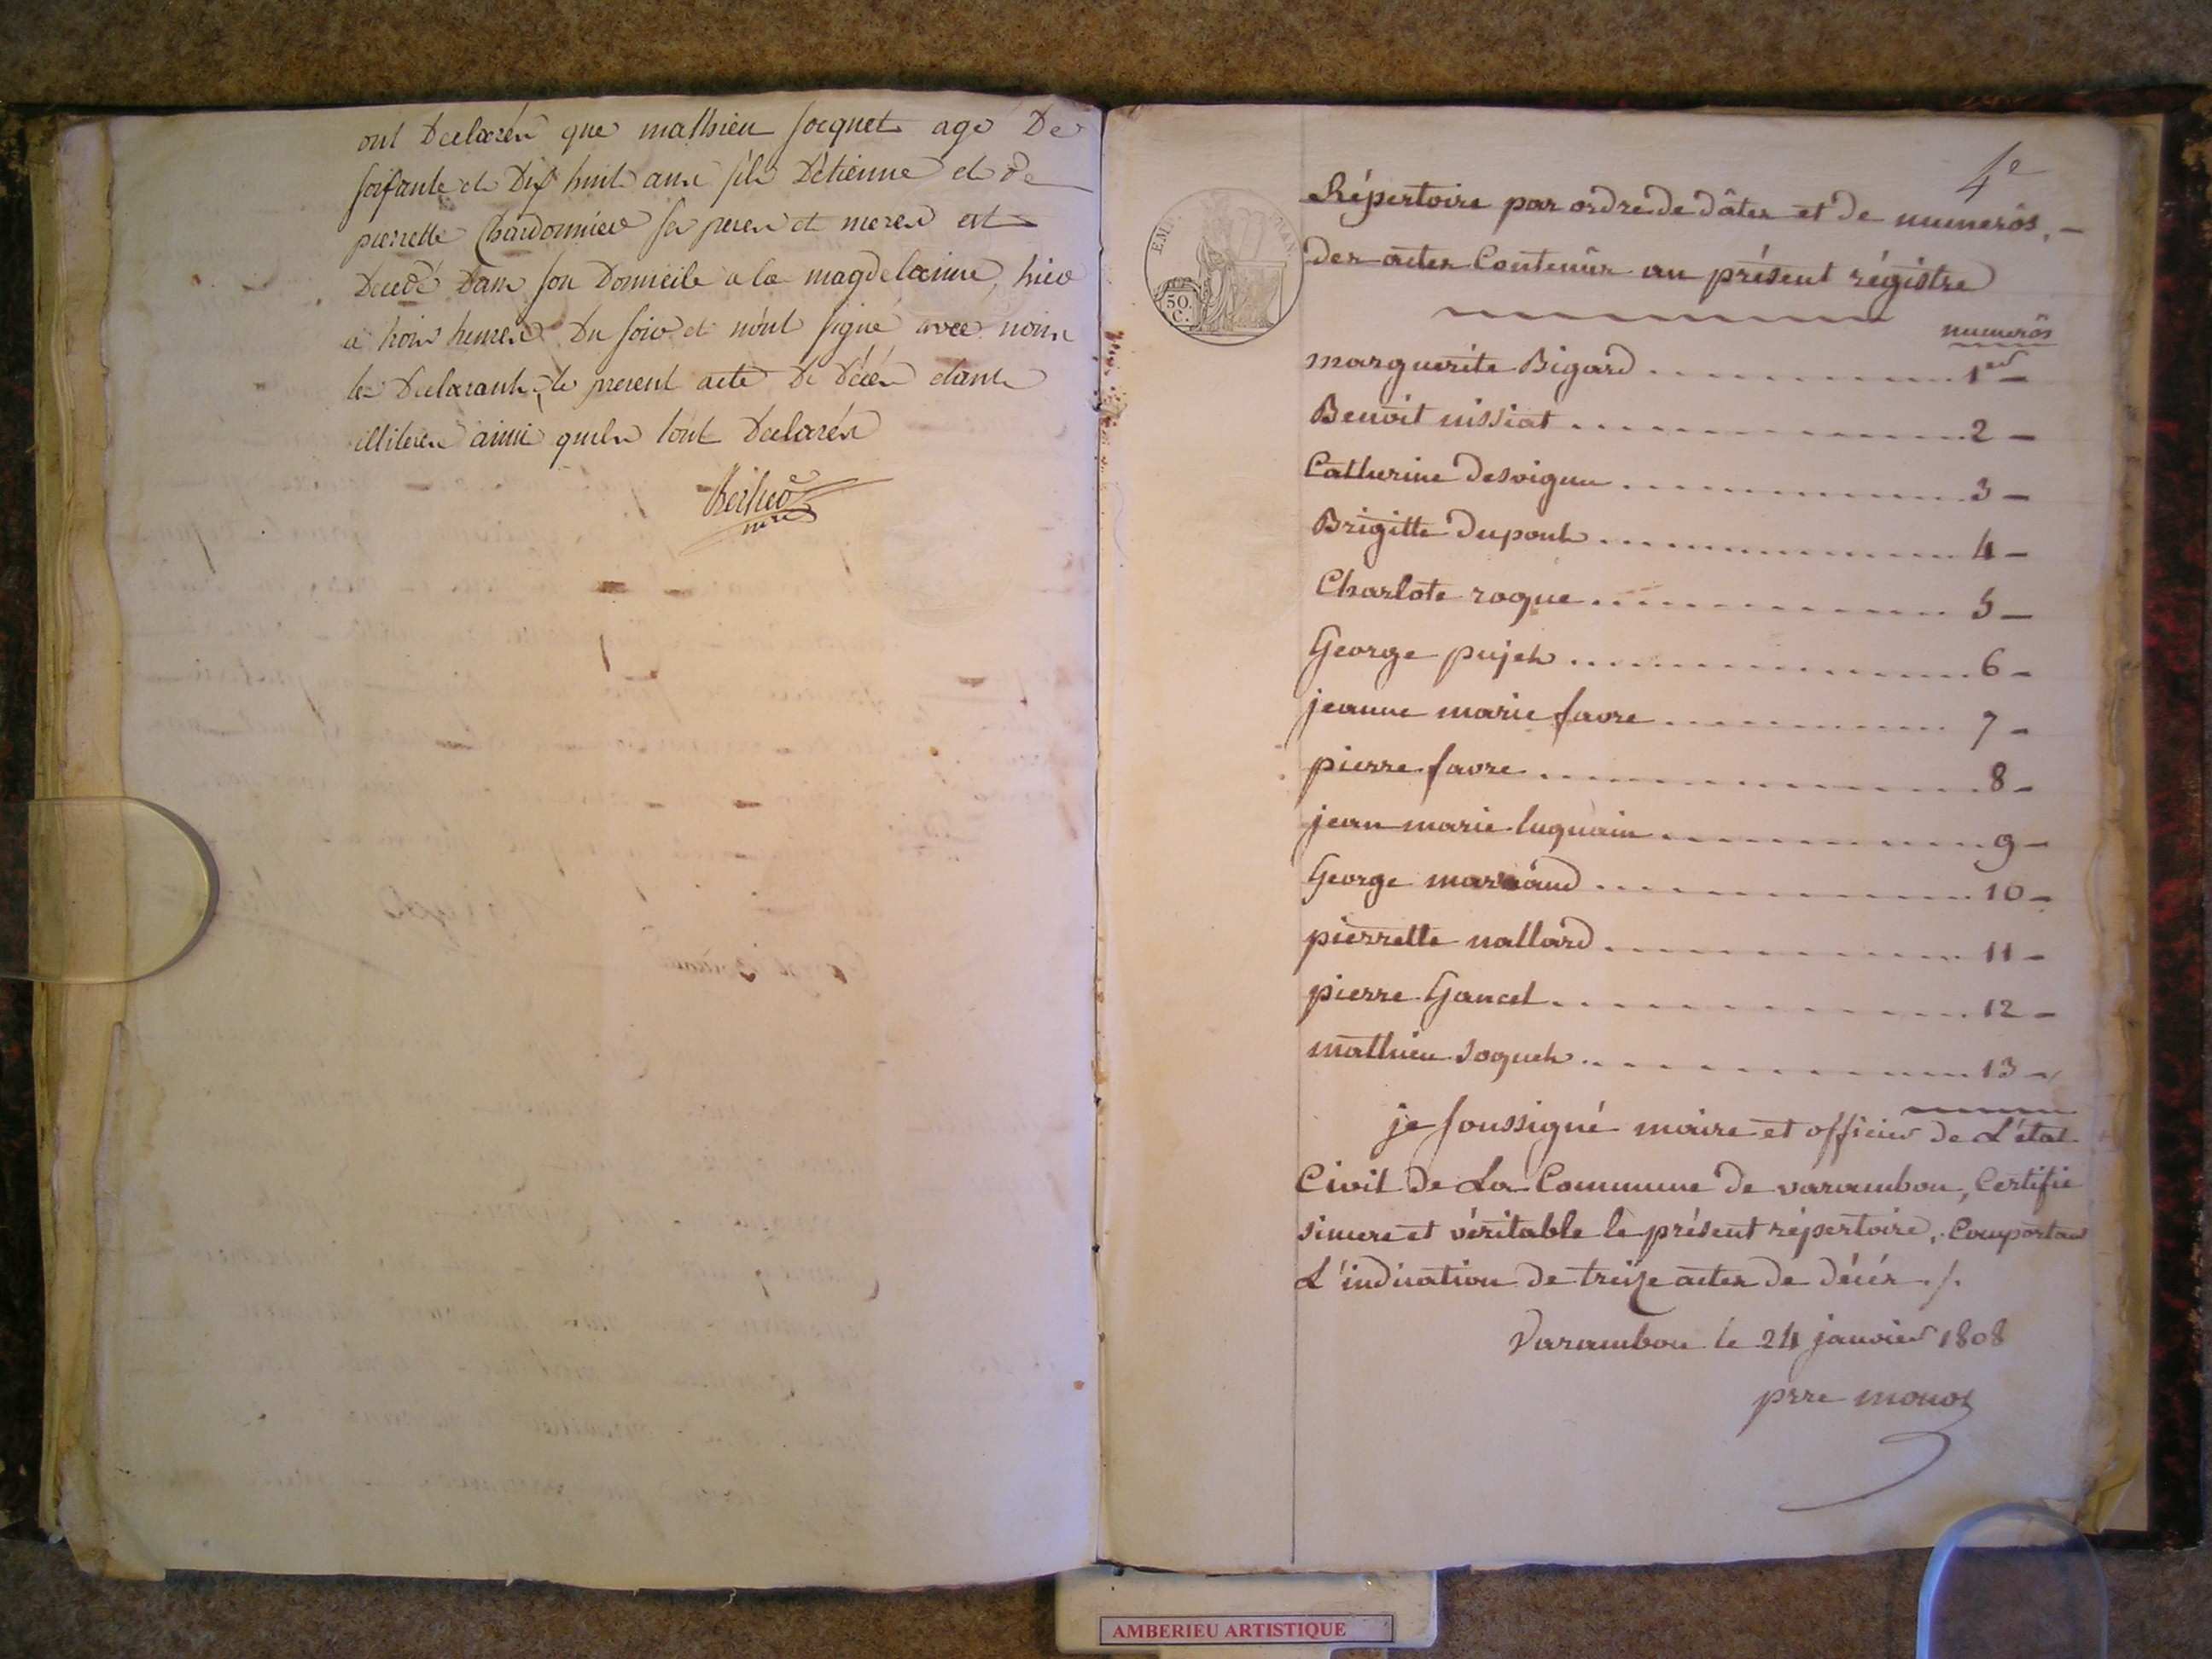 ont Declarés que mathieu Socquet agé De
soisante et Dix huit ans fils D'étienne et de
pierrette Chardonnier ses peres et meres est
Decedé Dans son Domicile a la magdelainne, hier
a trois heures Du soir et n'ont signé avec nous
les Declarants, le present acte De Décés étants
illiterés ainsi quils l'ont Declarés
4e
Répertoire par ordre de dâtes et de numerôs,
des actes Contenûs au présent régistre
numerôs
marguerite Bigard 1er
Benoit nissiat 2
Catherine Desvignes 3
Brigitte Dupont 4
Charlote roque 5
George pujet 6
jeanne marie favre 7
pierre favre 8
jean marie luquain 9
George 10
pierrette nallard 11
pierre Gancel 12
mathieu soquet 13
je soussigné maire et officier de L'état
Civil de La Commune de varambon, Certifie
sincere et véritable le présent répertoire, Comportant
L'indication de treize actes de décés ./.
Varambon le 24 janvier 1808
prre monot
EMP. FRAN.
50 C.
AMBERIEU ARTISTIQUE